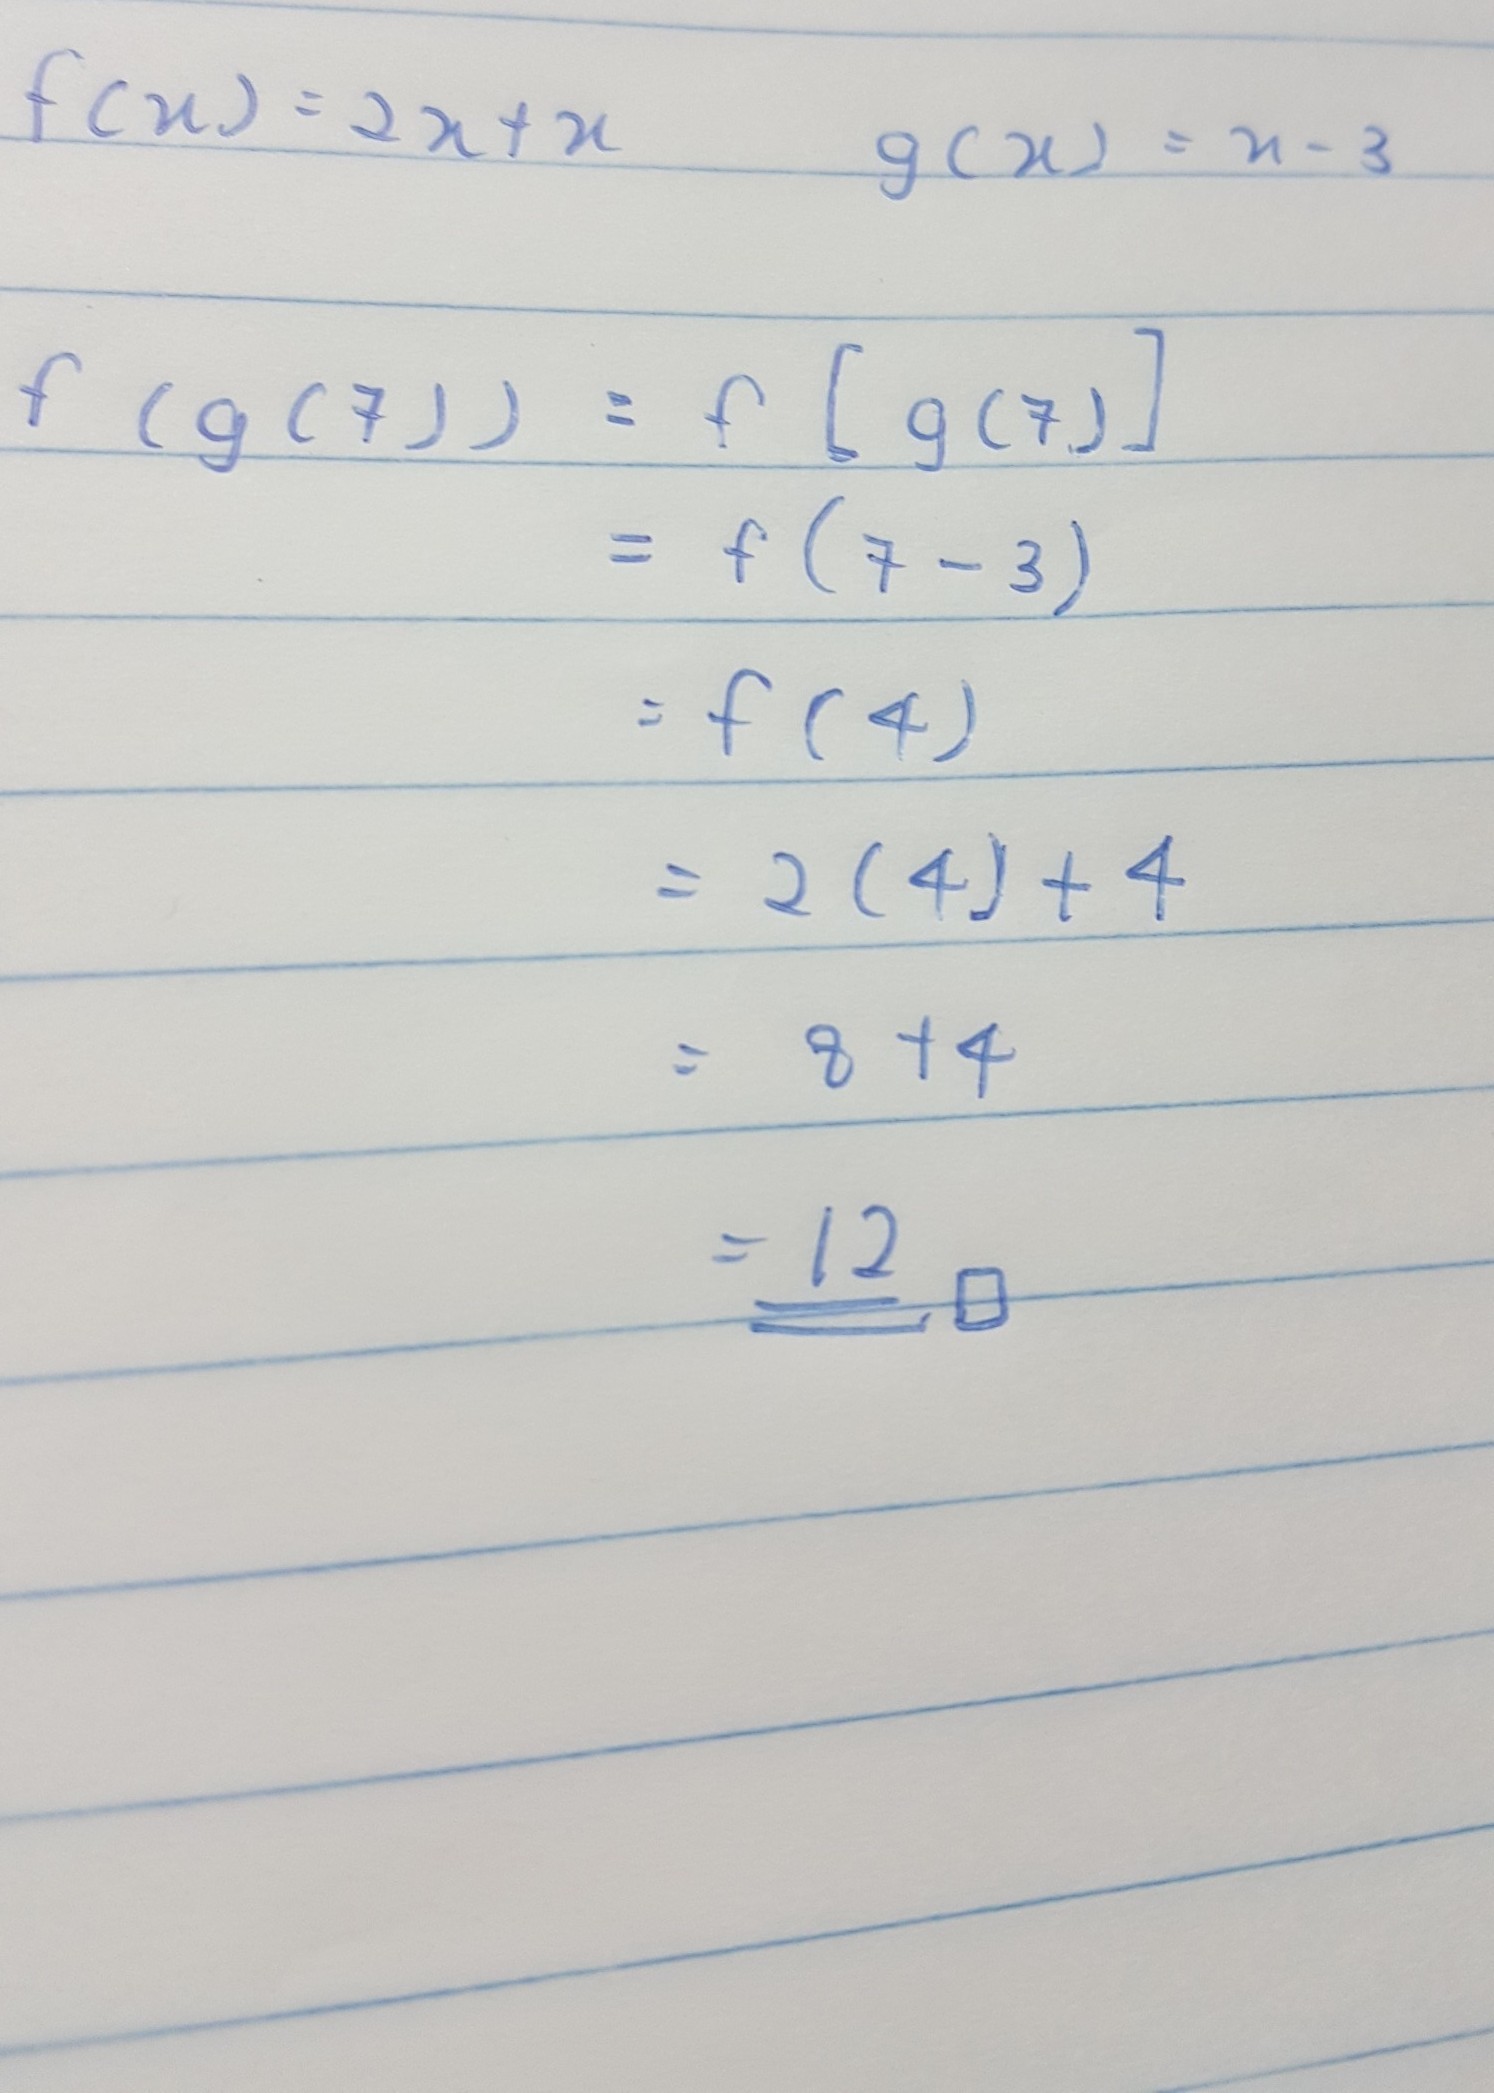 f(x) = 2x + x g(x) = x - 3
f (g(7)) = f [g(7)]
= f(7 - 3)
= f(4)
= 2(4) + 4
= 8 + 4
= 12